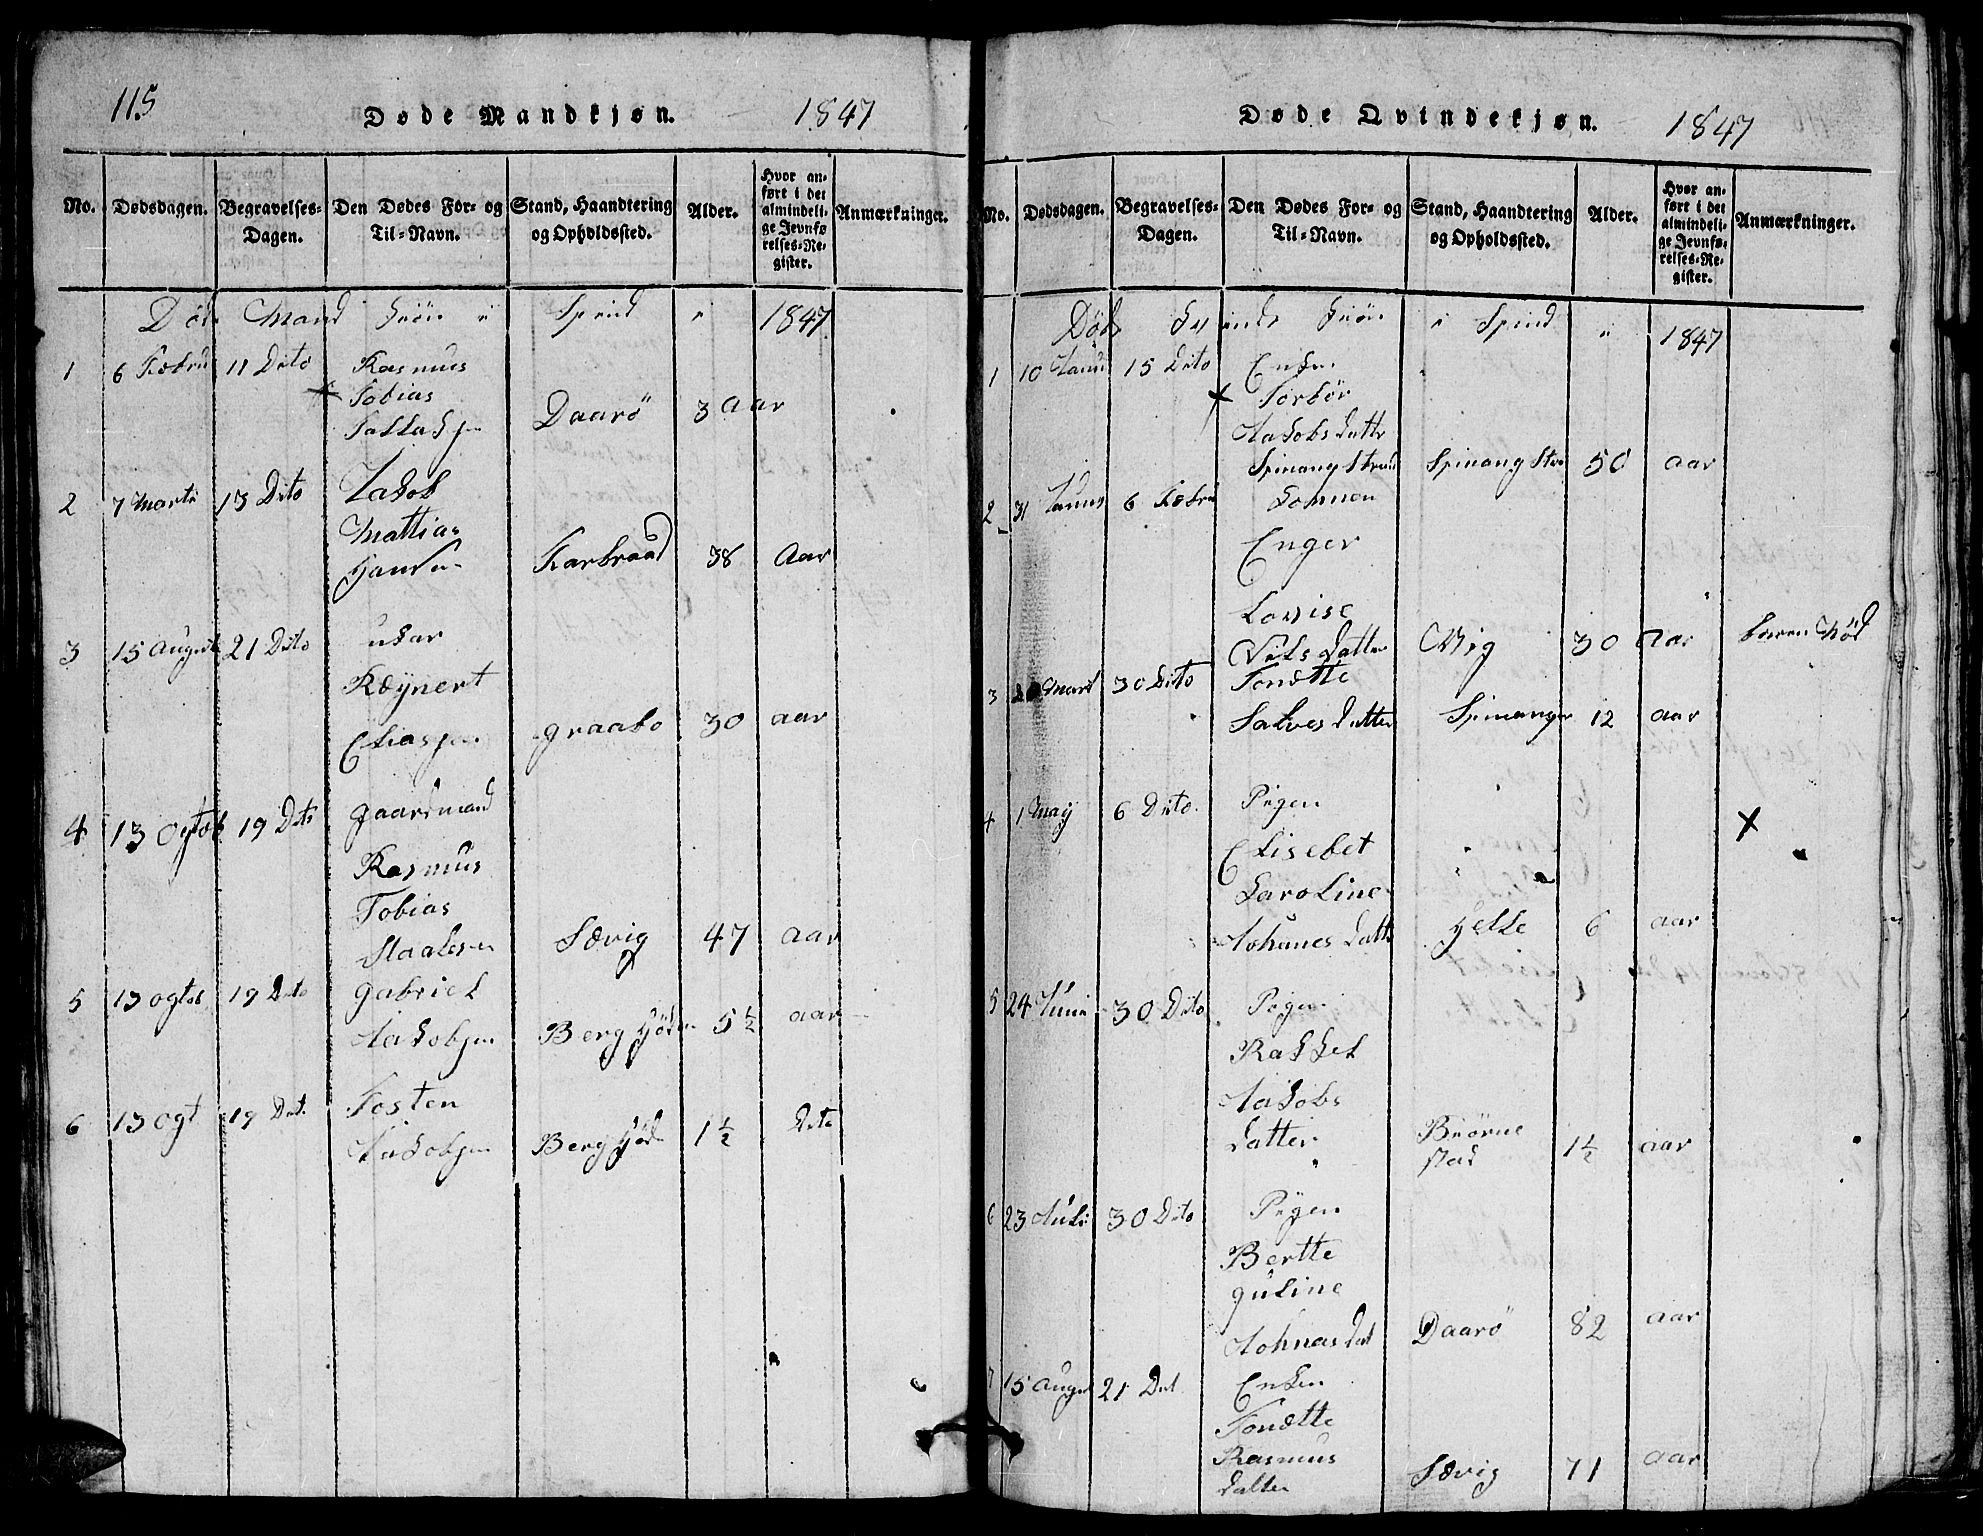 115
Døde Mandkjøn. 1847
No. Dødsdagen. Begravelses-Dagen. Den Dødes For- og Til-Navn. Stand, Haandtering og Opholdssted. Alder. Hvor anført i det almindelige Jevnførelses-Register. Anmærkninger.
Død Mand Kiön i Spind i 1847
1 6 Febru 11 Dito Rasmus
Tobias
Daarö 3 Aar
2 7 Marts 13 Dito Jakob
Mattias
Hansen Karbraad 38 Aar
3 15 August 21 Dito
Ræÿnert
Eliasen graabo 30 aar
4 13 Ogtob 19 Dito gaardmand
Rasmus
Tobias
Staalesen Sævig 47 aar
5 13 ogtob 19 Dito gabriel
Jakobsen Berg 5 ½ aar
6 13 ogt 19 Dit. Tosten
Jakobsen Berg 1 ½ Dito
Døde Qvindekjøn. 1847
No. Dødsdagen. Begravelses-Dagen. Den Dødes For- og Til-Navn. Stand, Haandtering og Opholdssted. Alder. Hvor anført i det almindelige Jevnførelses-Register. Anmærkninger.
Döde Kiön i Spind i 1847
1 10 Janu 15 Dito Enken
Torbör
Jakobs Datter
Spinang Strand Spinang Str 50 aar
2 31 Janu 6 Febru Konnen
Enger
Lovise
Nils Datter Vig 30 aar barn
3 Mart 30 Dito Tonette
Salves Datter Spinanger 12 aar
4 1 May 6 Dito Pigen
Elisebet
Karoline
Johanes Datt Helle 6 aar
5 24 Juni 30 Dito Pigen
Rakkel
Jakobs
Datter Biörne stad 1 ½ aar
6 23 Juli 30 Dito Pigen
Bertte
guline
Johnas Dat Daarö 82 aar
7 15 Augu 21 Dit Enken
Tonette
Rasmus
Datter Sævig 71 aar